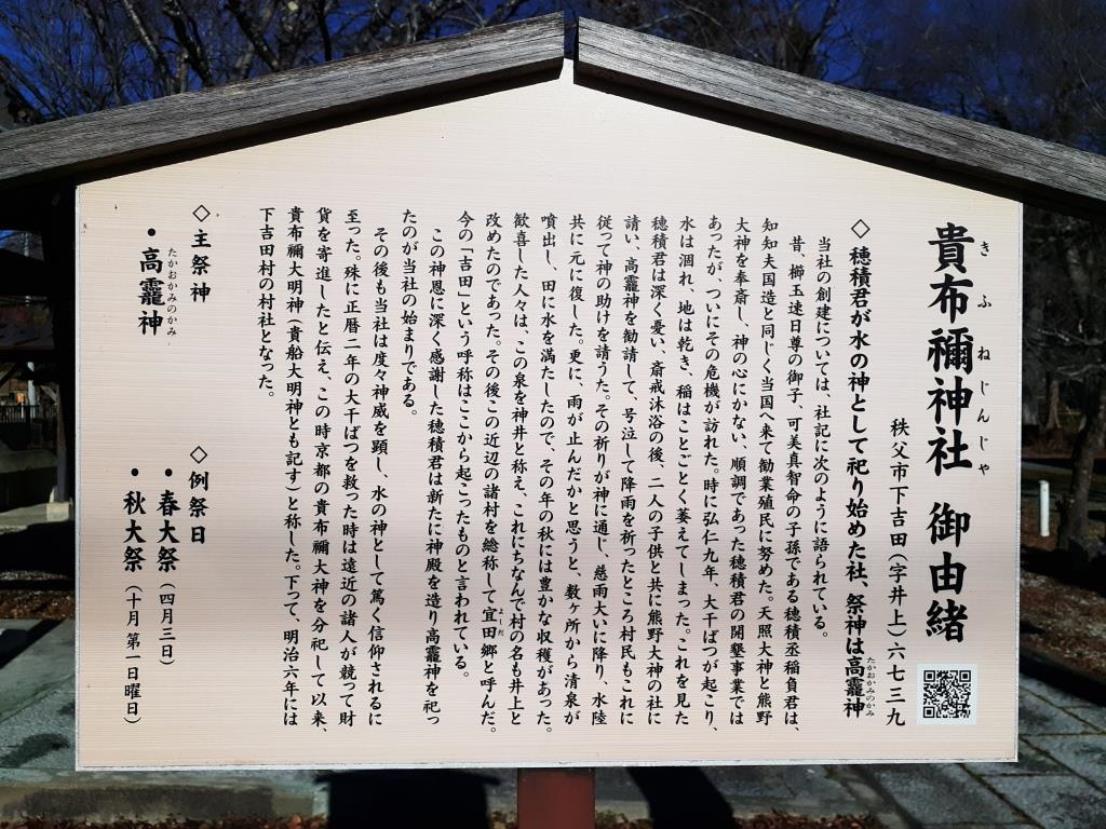 貴布禰神社 御由緒
きふねじんじゃ
秩父市下吉田(字井上)六七三九
◇穂積君が水の神として祀り始めた社、祭神は高龗神
たかおかみのかみ
当社の創建については、社記に次のように語られている。
昔、櫛玉速日尊の御子、可美真智命の子孫である穂積丞稲負君は、
知知夫国造と同じく当国へ来て勧業殖民に努めた。天照大神と熊野
大神を奉斎し、神の心にかない、順調であった穂積君の開墾事業では
あったが、ついにその危機が訪れた。時に弘仁九年、大干ばつが起こり、
水は涸れ、地は乾き、稲はことごとく萎えてしまった。これを見た
穂積君は深く憂い、斎戒沐浴の後、二人の子供と共に熊野大神の社に
請い、高龗神を勧請して、号泣して降雨を祈ったところ村民もこれに
従って神の助けを請うた。その祈りが神に通し、慈雨大いに降り、水陸
共に元に復した。更に、雨が止んだかと思うと、数ヶ所から清泉が
噴出し、田に水を満たしたので、その年の秋には豊かな収穫があった。
歓喜した人々は、この泉を神井と称え、これにちなんで村の名も井上と
改めたのであった。その後この近辺の諸村を総称して宜田郷と呼んだ。
よしだ
今の「吉田」という呼称はここから起こったものと言われている。
この神恩に深く感謝した穂積君は新たに神殿を造り高龗神を祀っ
たのが当社の始まりである。
その後も当社は度々神威を顕し、水の神として篤く信仰されるに
至った。殊に正暦二年の大干ばつを救った時は遠近の諸人が競って財
貨を寄進したと伝え、この時京都の貴布禰大神を分祀して以来、
貴布禰大明神(貴船大明神とも記す)と称した。下って、明治六年には
下吉田村の村社となった。
◇主祭神
・高龗神
たかおかみのかみ
◇例祭日
・春大祭(四月三日)
・秋大祭(十月 第一日曜日)